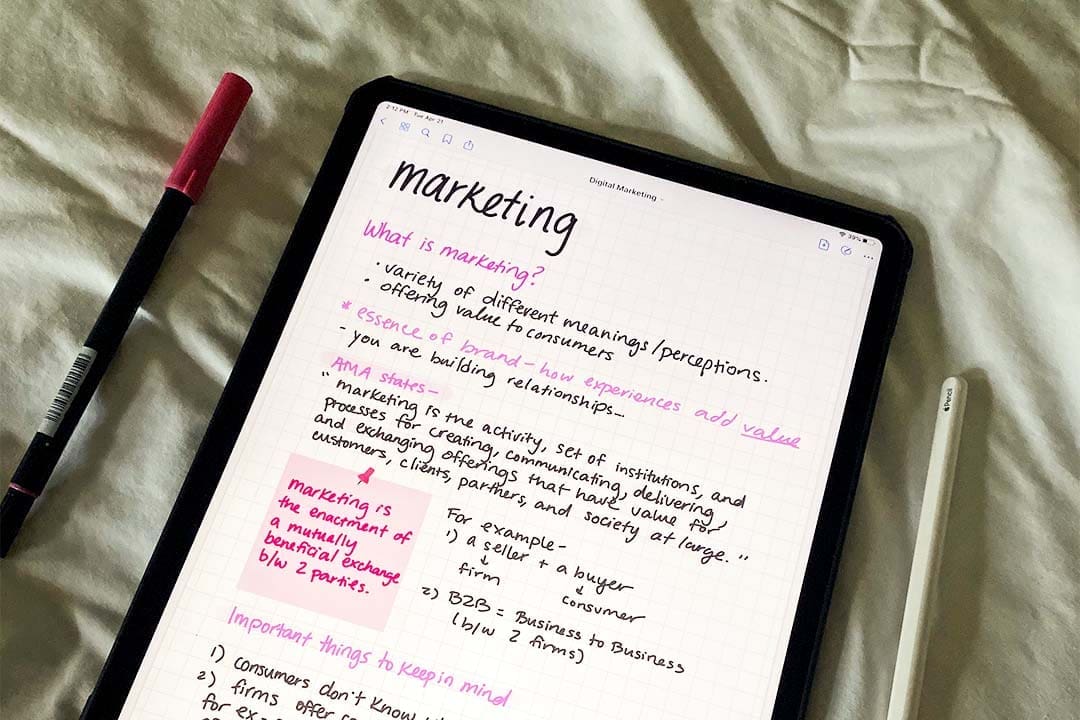 2:12 PM Tue Apr 21
39%
Digital Marketing
marketing
What is marketing?
• variety of different meanings/perceptions.
• offering value to consumers
* essence of brand - how experiences add value
- you are building relationships...
AMA states -
"marketing is the activity, set of institutions, and
processes for creating, communicating, delivering,
and exchanging offerings that have value for
customers, clients, partners, and society at large."
marketing is
the enactment of
a mutually
beneficial exchange
b/w 2 parties.
For example -
1) a seller + a buyer
↓ ↓
firm consumer
2) B2B = Business to Business
(b/w 2 firms)
Important things to keep in mind
1) consumers don't know
2) firms offer
for
Pencil